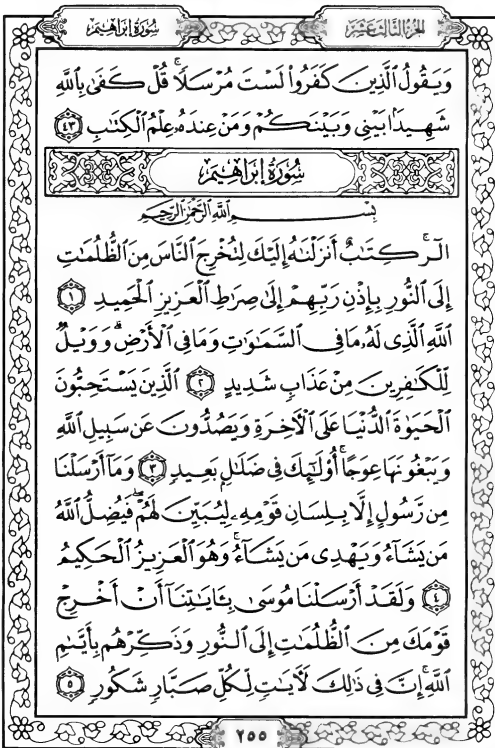 سُورَةُ إِبْرَاهِيم الجُزْءُ الثَّالِثَ عَشَرَ
وَيَقُولُ ٱلَّذِينَ كَفَرُوا۟ لَسْتَ مُرْسَلًا ۚ قُلْ كَفَىٰ بِٱللَّهِ
شَهِيدًۢا بَيْنِى وَبَيْنَكُمْ وَمَنْ عِندَهُۥ عِلْمُ ٱلْكِتَٰبِ ٤٣
سُورَةُ إِبْرَاهِيم
بِسْمِ ٱللَّهِ ٱلرَّحْمَٰنِ ٱلرَّحِيمِ
الٓر ۚ كِتَٰبٌ أَنزَلْنَٰهُ إِلَيْكَ لِتُخْرِجَ ٱلنَّاسَ مِنَ ٱلظُّلُمَٰتِ
إِلَى ٱلنُّورِ بِإِذْنِ رَبِّهِمْ إِلَىٰ صِرَٰطِ ٱلْعَزِيزِ ٱلْحَمِيدِ ١
ٱللَّهِ ٱلَّذِى لَهُۥ مَا فِى ٱلسَّمَٰوَٰتِ وَمَا فِى ٱلْأَرْضِ ۗ وَوَيْلٌ
لِّلْكَٰفِرِينَ مِنْ عَذَابٍ شَدِيدٍ ٢ ٱلَّذِينَ يَسْتَحِبُّونَ
ٱلْحَيَوٰةَ ٱلدُّنْيَا عَلَى ٱلْءَاخِرَةِ وَيَصُدُّونَ عَن سَبِيلِ ٱللَّهِ
وَيَبْغُونَهَا عِوَجًا ۚ أُو۟لَٰٓئِكَ فِى ضَلَٰلٍۭ بَعِيدٍ ٣ وَمَآ أَرْسَلْنَا
مِن رَّسُولٍ إِلَّا بِلِسَانِ قَوْمِهِۦ لِيُبَيِّنَ لَهُمْ ۖ فَيُضِلُّ ٱللَّهُ
مَن يَشَآءُ وَيَهْدِى مَن يَشَآءُ ۚ وَهُوَ ٱلْعَزِيزُ ٱلْحَكِيمُ
٤ وَلَقَدْ أَرْسَلْنَا مُوسَىٰ بِـَٔايَٰتِنَآ أَنْ أَخْرِجْ
قَوْمَكَ مِنَ ٱلظُّلُمَٰتِ إِلَى ٱلنُّورِ وَذَكِّرْهُم بِأَيَّىٰمِ
ٱللَّهِ ۚ إِنَّ فِى ذَٰلِكَ لَءَايَٰتٍ لِّكُلِّ صَبَّارٍ شَكُورٍ ٥
٢٥٥